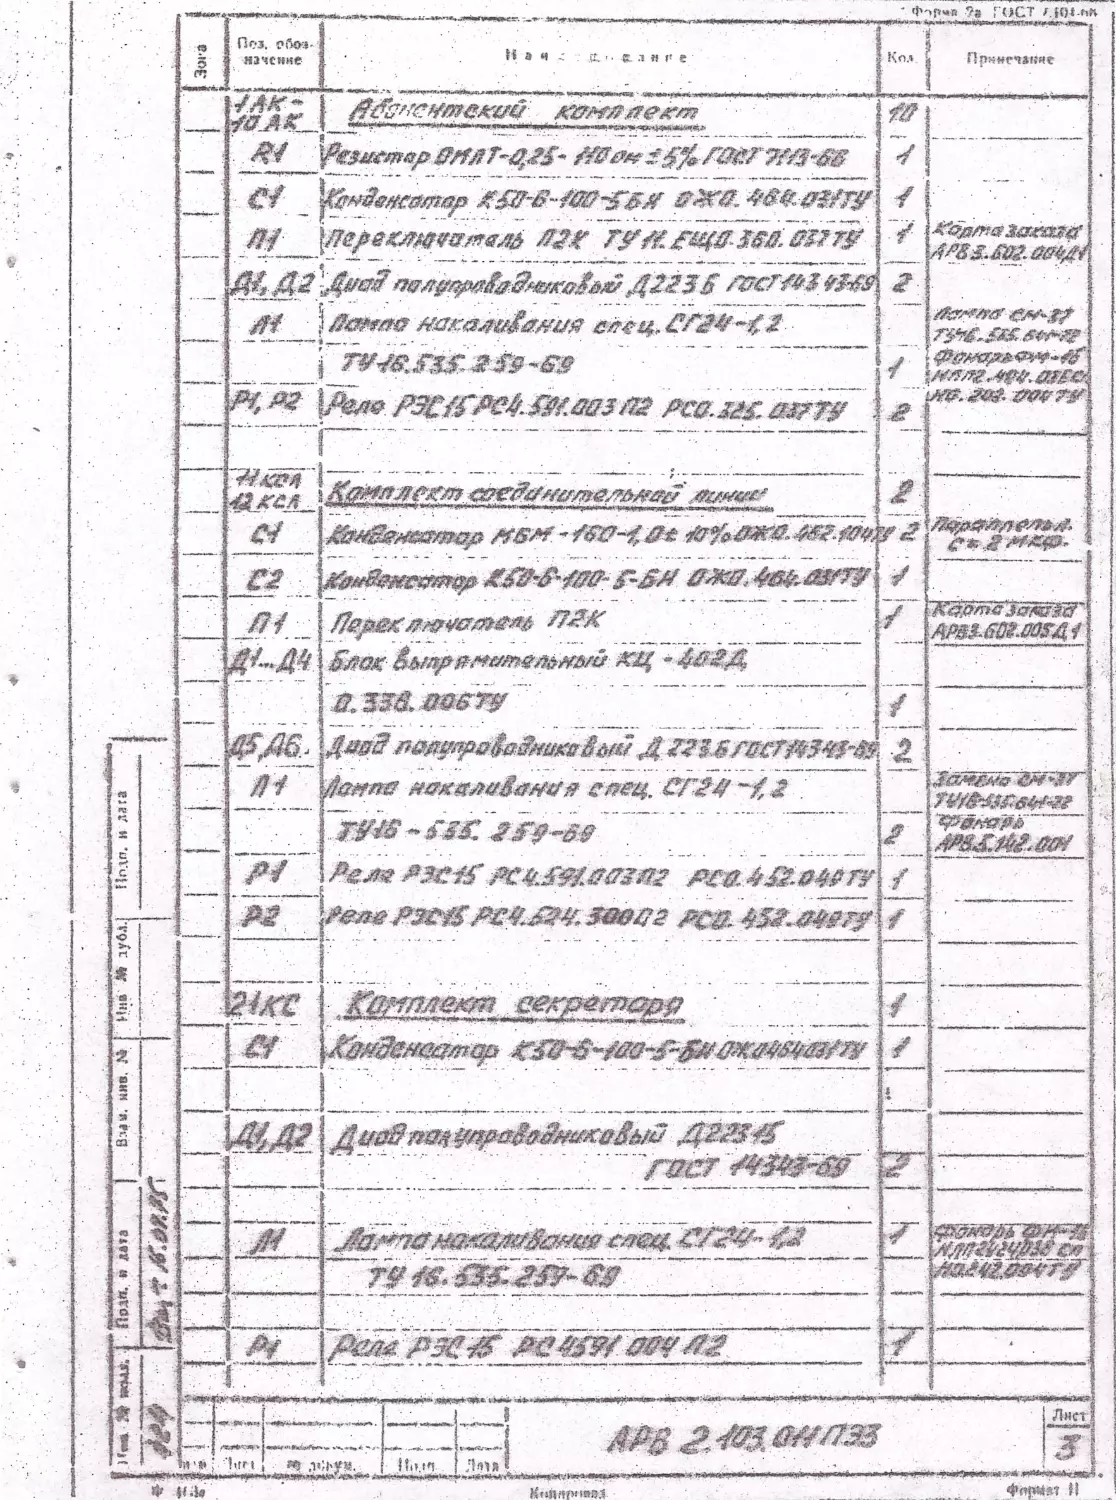 Форма 2а ГОСТ
Зона
Поз. обозначение
Наименование
Кол
Примечание
1АК-
10АК
Абонентский комплект
10
R1 Резистор ОМЛТ-0,25- ом ±5% ГОСТ 7113-66 1
С1 Конденсатор К50-6-100-5БИ ОЖ0.464.031ТУ 1
П1 Переключатель П2К ЕЩ0.360.037ТУ 1 Карта заказа
АРВ3.602.004Д1
Д1, Д2 Диод полупроводниковый Д223Б ГОСТ14343-69 2
Л1 Лампа накаливания спец. СГ24-1,2 Лампа СМ-37
ТУ-16.535.259-69 1 Фонарь ФМ-16
Р1, Р2 Реле РЭС15 РС4.591.003П2 РС0. ТУ 2
11КСЛ
12КСЛ
Комплект соединительной линии
2
С1 Конденсатор МБМ-160-1,0±10% ОЖ0.462.104ТУ 2 Параллельн.
С=2 мкф.
С2 Конденсатор К50-6-100-5-БИ ОЖ0.464.031ТУ 1
П1 Переключатель П2К 1 Карта заказа
АРВ3.602.005Д1
Д1...Д4 Блок выпрямительный КЦ-402Д
0.336.006ТУ 1
Д5,Д6. Диод полупроводниковый Д223Б ГОСТ14343-69 2
Л1 Лампа накаливания спец. СГ24-1,2 Замена СМ-37
ТУ16-535.259-69 2 Фонарь
АРВ.5.142.001
Р1 Реле РЭС15 РС4.591.003П2 РС0.452.049ТУ 1
Р2 Реле РЭС15 РС4.524.300П2 РС0.452.049ТУ 1
21КС Комплект секретаря 1
С1 Конденсатор К50-6-100-5-БИ ОЖ0464031ТУ 1
Д1,Д2 Диод полупроводниковый Д223Б
ГОСТ 14343-69 2
Л1 Лампа накаливания спец. СГ24-1,2 1 Фонарь ФМ-16
ТУ 16.535.259-69
Р1 Реле РЭС-15 РС4591 004 П2 1
Подп. и дата
Инв № дубл.
Взам. инв. №
Подп. и дата
16.09.85
Инв № подл.
124
Лист
№ докум.
Подп
Дата
АРВ 2.103.011ПЭ3
Лист
3
Копировал
Формат 11